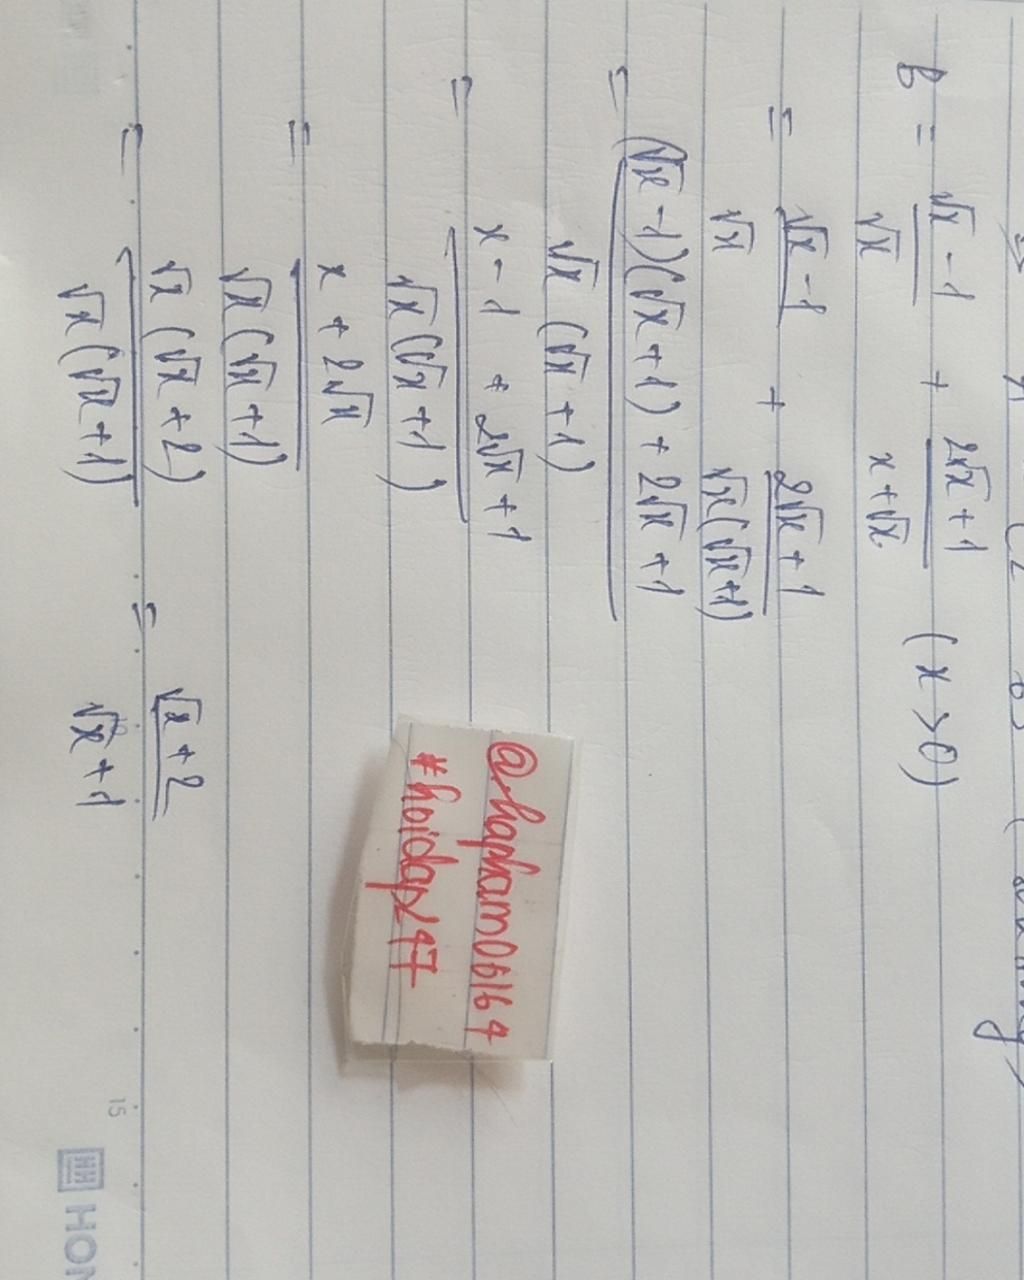 B = (√x - 1)/√x + (2√x + 1)/(x + √x) (x > 0)
= (√x - 1)/√x + (2√x + 1)/(√x(√x + 1))
= ((√x - 1)(√x + 1) + 2√x + 1)/(√x (√x + 1))
= (x - 1 + 2√x + 1)/(√x(√x + 1))
= (x + 2√x)/(√x(√x + 1))
= (√x (√x + 2))/(√x (√x + 1)) = (√x + 2)/(√x + 1)
@rhapham06164
#hoidap247
15
HON